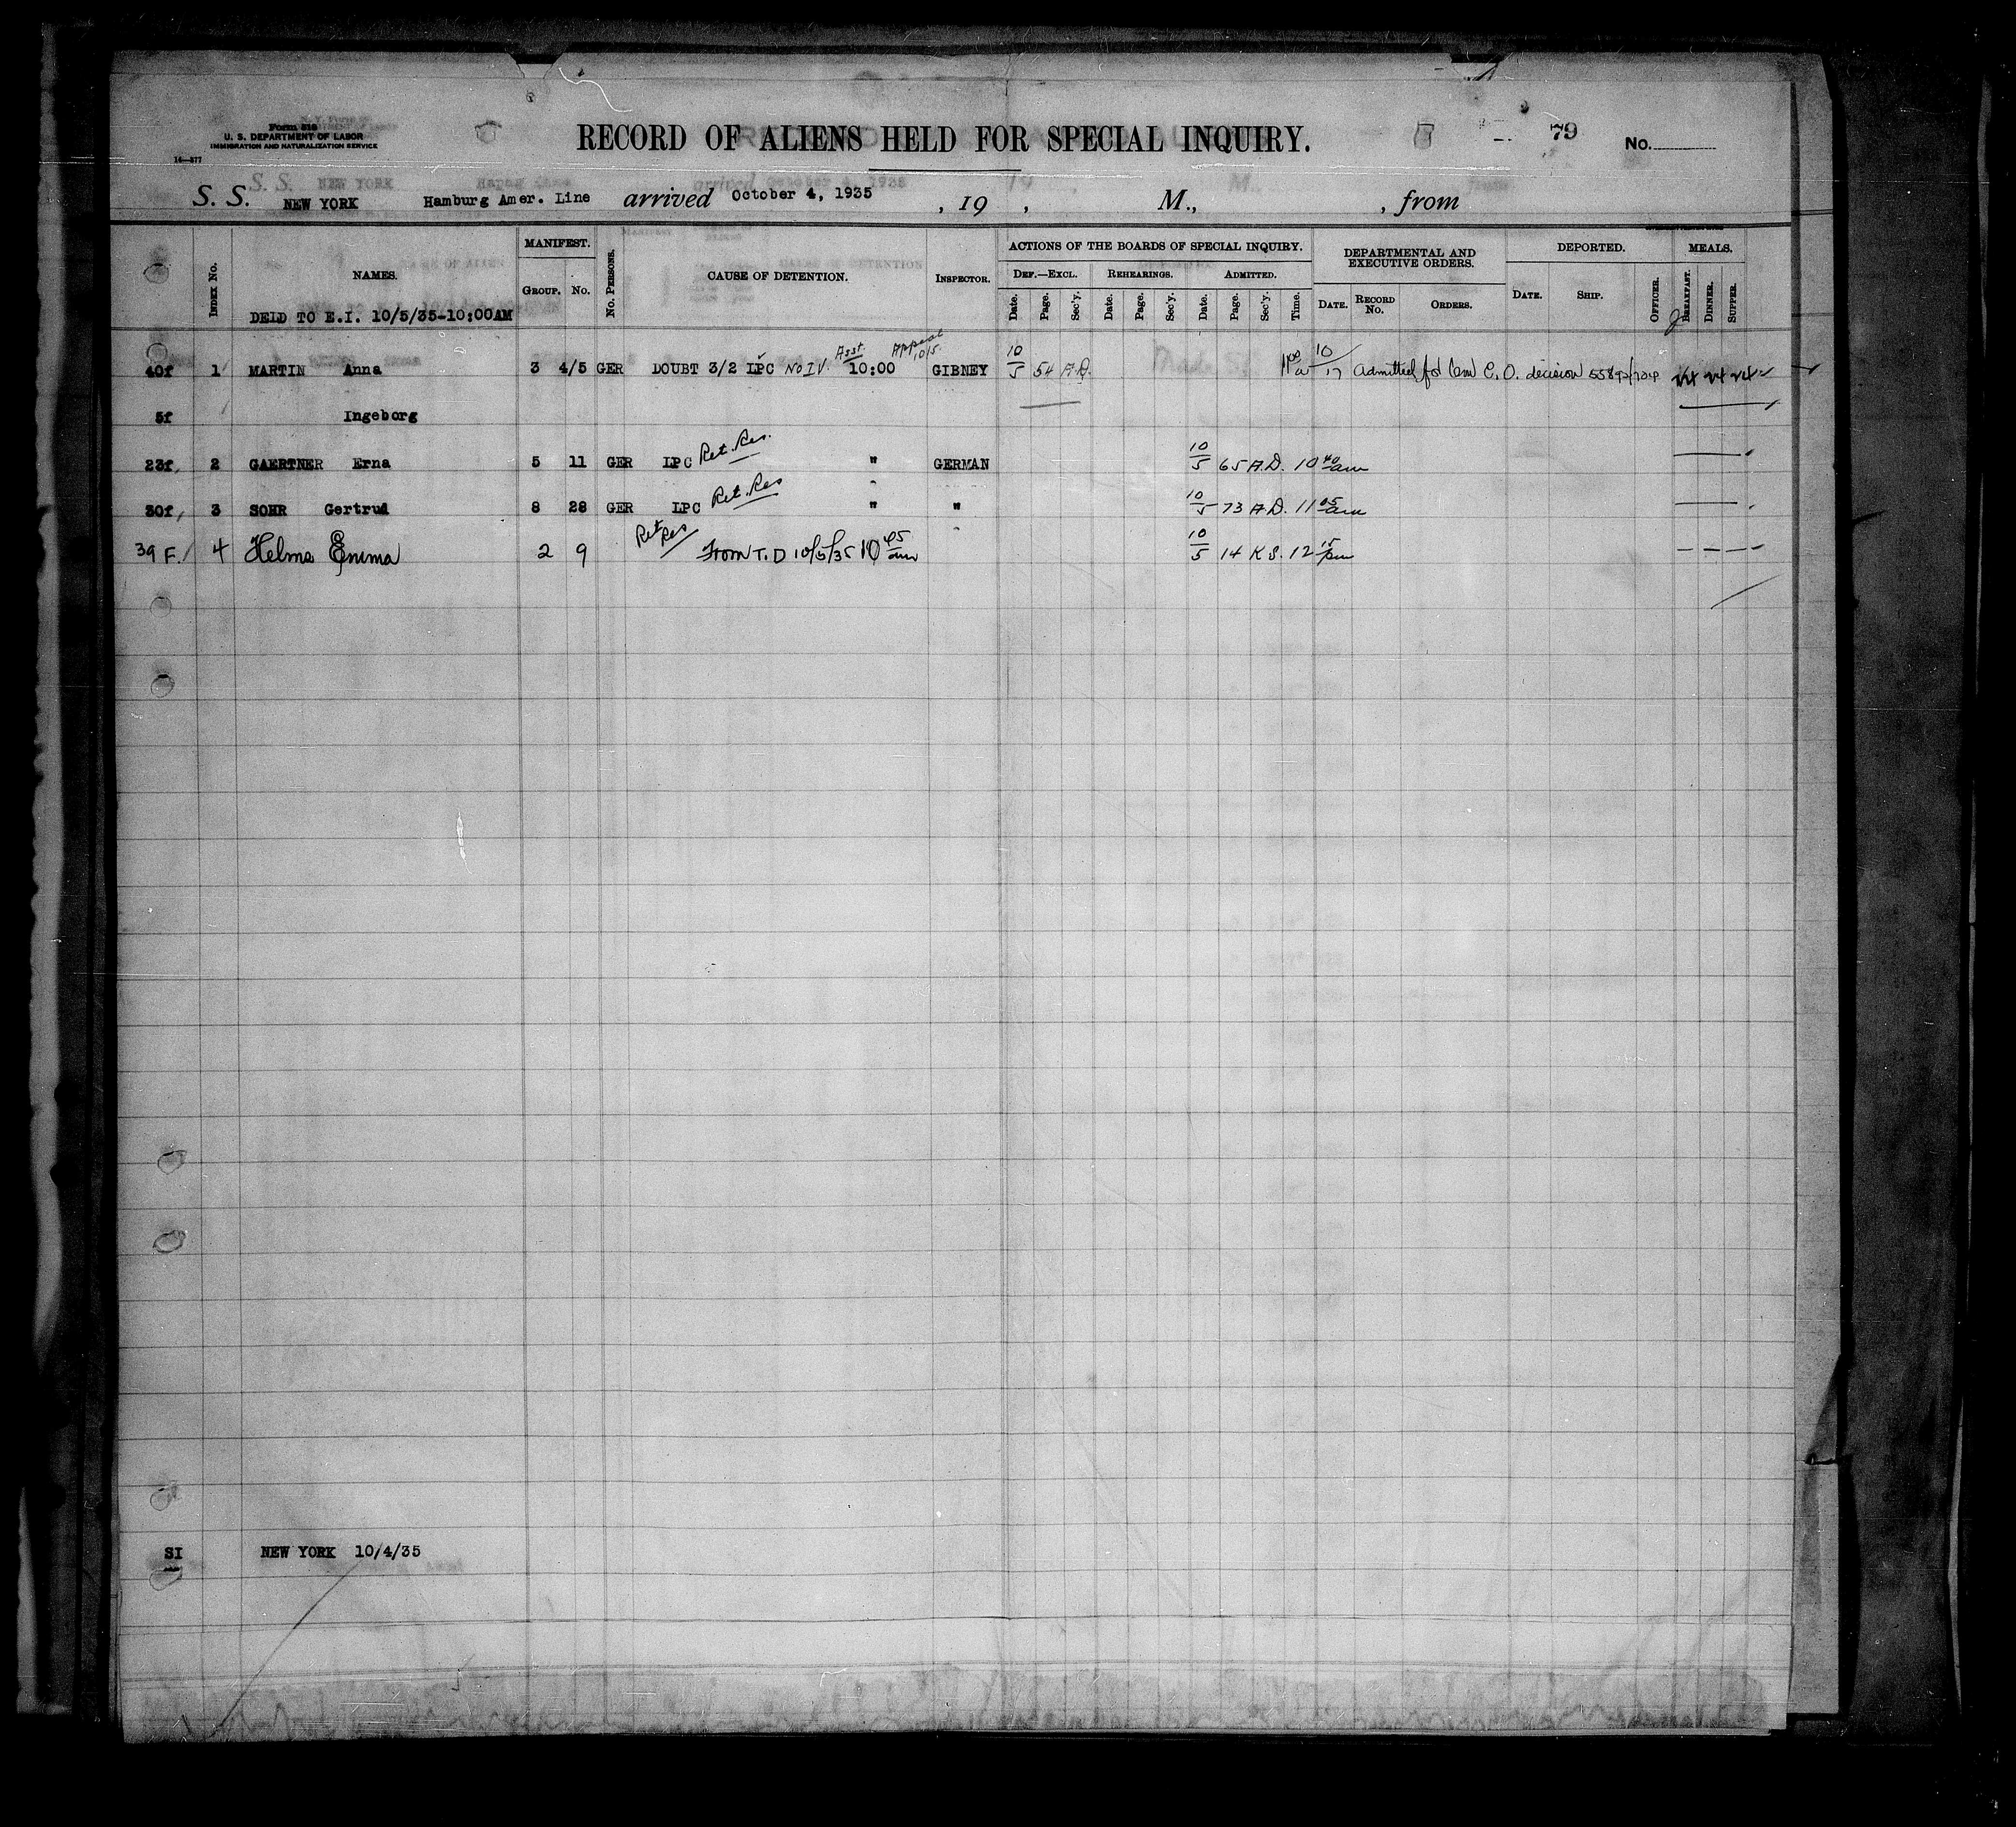 Form 518
U. S. DEPARTMENT OF LABOR
IMMIGRATION AND NATURALIZATION SERVICE
14—877
RECORD OF ALIENS HELD FOR SPECIAL INQUIRY.
79 No.
S. S. NEW YORK Hamburg Amer. Line arrived October 4, 1935 , 19 , M., , from
INDEX No. NAMES. MANIFEST. GROUP. No. No. PERSONS. CAUSE OF DETENTION. INSPECTOR. ACTIONS OF THE BOARDS OF SPECIAL INQUIRY. DEPARTMENTAL AND EXECUTIVE ORDERS. DEPORTED. MEALS.
DEF.—EXCL. REHEARINGS. ADMITTED.
Date. Page. Sec'y. Date. Page. Sec'y. Date. Page. Sec'y. Time. DATE. RECORD No. ORDERS. DATE. SHIP. OFFICER. BREAKFAST. DINNER. SUPPER.
DELD TO E.I. 10/5/35-10:00AM
40f 1 MARTIN Anna 3 4/5 GER DOUBT 3/2 LPC No IV. Asst. 10:00 Appeal 10/5. GIBNEY 10/5 54 A.D. 10/17 Admitted C. O. decision
5f Ingeborg
23f 2 GAERTNER Erna 5 11 GER LPC Ret. Res. " GERMAN 10/5 65 A.D. 10 40 am
30f 3 SOHR Gertrud 8 28 GER LPC Ret. Res " " 10/5 73 A.D. 11 05 am
39 F. 4 Helms Emma 2 9 Ret Res From T.D 10/5/35 10 45 am 10/5 14 K S. 12 15 pm
SI NEW YORK 10/4/35